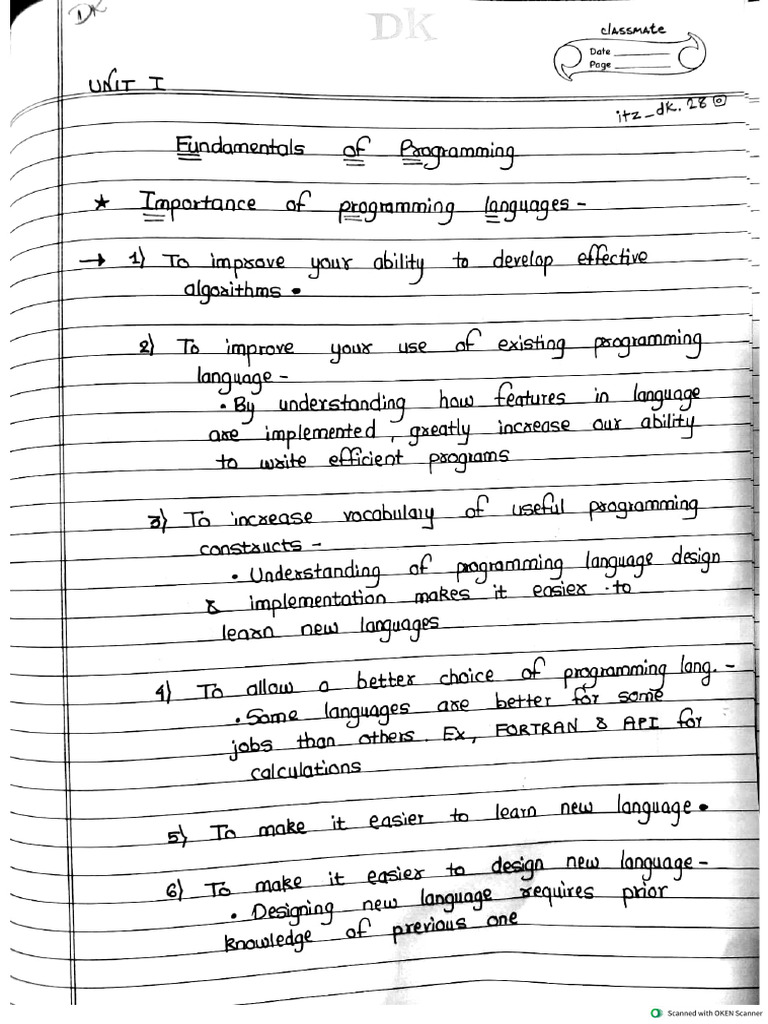 DK
Dk
classmate
Date
Page
UNIT I
itz_dk.28
Fundamentals of Programming
★ Importance of programming languages -
→ 1) To improve your ability to develop effective
algorithms.
2) To improve your use of existing programming
language -
• By understanding how features in language
are implemented, greatly increase our ability
to write efficient programs
3) To increase vocabulary of useful programming
constructs -
• Understanding of programming language design
& implementation makes it easier to
learn new languages
4) To allow a better choice of programming lang. -
• Some languages are better for some
jobs than others. Ex, FORTRAN & API for
calculations
5) To make it easier to learn new language.
6) To make it easier to design new language -
• Designing new language requires prior
knowledge of previous one
Scanned with OKEN Scanner